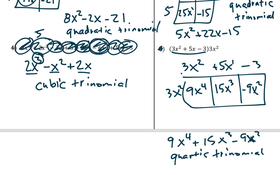 8x²-2x-21
quadratic trinomial
2x³-x²+2x
cubic trinomial
5 25x -15
quadratic
trinomial
5x²+22x-15
(3x² + 5x − 3)3x²
3x² +5x -3
3x² 9x⁴ 15x³ -9x²
9x⁴+15x³-9x²
quartic trinomial